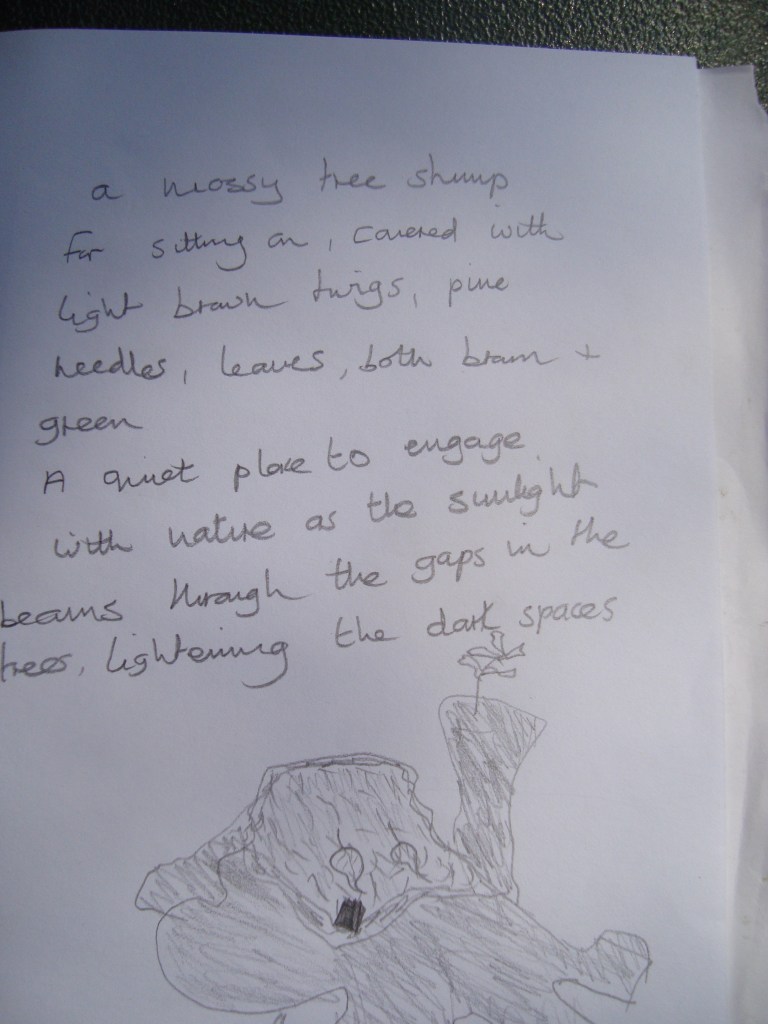 a mossy tree stump
for sitting on, covered with
light brown twigs, pine
needles, leaves, both brown +
green
A quiet place to engage
with nature as the sunlight
beams through the gaps in the
trees, lightening the dark spaces